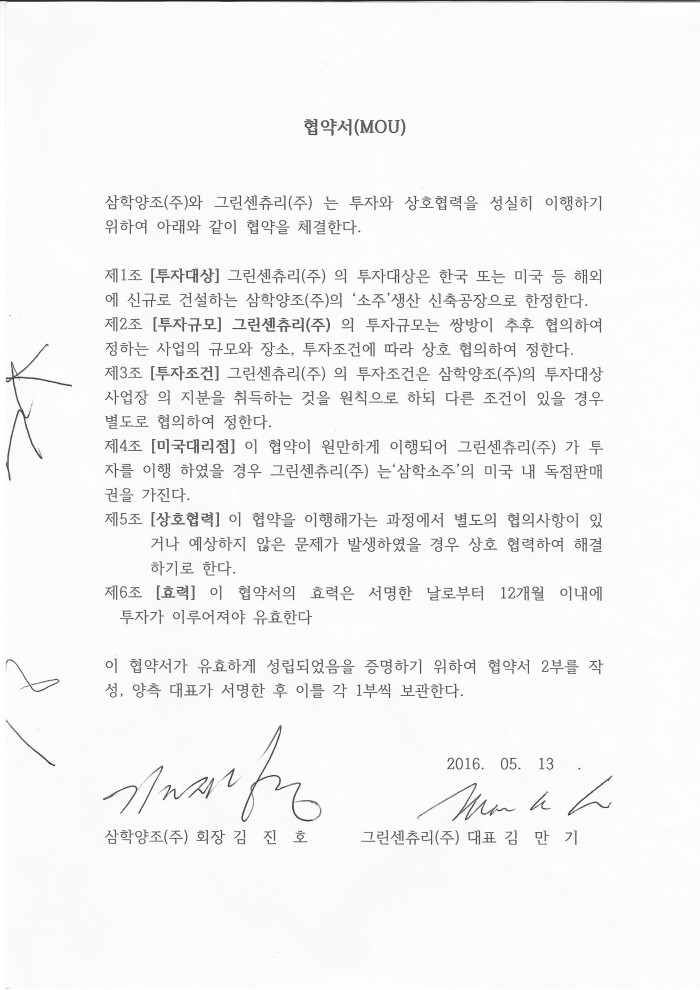 협약서(MOU)
삼학양조(주)와 그린센츄리(주) 는 투자와 상호협력을 성실히 이행하기
위하여 아래와 같이 협약을 체결한다.
제1조 [투자대상] 그린센츄리(주) 의 투자대상은 한국 또는 미국 등 해외
에 신규로 건설하는 삼학양조(주)의 '소주'생산 신축공장으로 한정한다.
제2조 [투자규모] 그린센츄리(주) 의 투자규모는 쌍방이 추후 협의하여
정하는 사업의 규모와 장소, 투자조건에 따라 상호 협의하여 정한다.
제3조 [투자조건] 그린센츄리(주) 의 투자조건은 삼학양조(주)의 투자대상
사업장 의 지분을 취득하는 것을 원칙으로 하되 다른 조건이 있을 경우
별도로 협의하여 정한다.
제4조 [미국대리점] 이 협약이 원만하게 이행되어 그린센츄리(주) 가 투
자를 이행 하였을 경우 그린센츄리(주) 는'삼학소주'의 미국 내 독점판매
권을 가진다.
제5조 [상호협력] 이 협약을 이행해가는 과정에서 별도의 협의사항이 있
거나 예상하지 않은 문제가 발생하였을 경우 상호 협력하여 해결
하기로 한다.
제6조 [효력] 이 협약서의 효력은 서명한 날로부터 12개월 이내에
투자가 이루어져야 유효한다
이 협약서가 유효하게 성립되었음을 증명하기 위하여 협약서 2부를 작
성, 양측 대표가 서명한 후 이를 각 1부씩 보관한다.
2016. 05. 13 .
삼학양조(주) 회장 김 진 호 그린센츄리(주) 대표 김 만 기